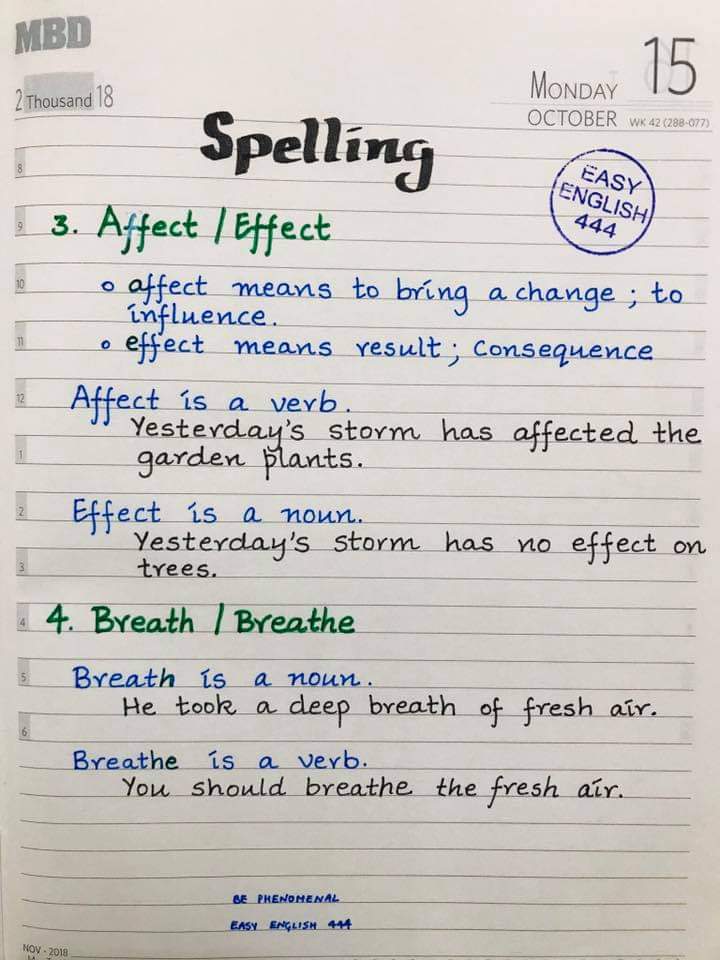 MBD
2 Thousand 18
15
MONDAY
OCTOBER WK 42 (288-077)
Spelling
EASY
ENGLISH
444
8
9
3. Affect / Effect
10
o affect means to bring a change ; to
influence.
11
o effect means result ; consequence
12
Affect is a verb.
Yesterday's storm has affected the
1
garden plants.
2
Effect is a noun.
Yesterday's storm has no effect on
3
trees.
4
4. Breath / Breathe
5
Breath is a noun.
He took a deep breath of fresh air.
6
Breathe is a verb.
You should breathe the fresh air.
BE PHENOMENAL
EASY ENGLISH 444
NOV - 2018